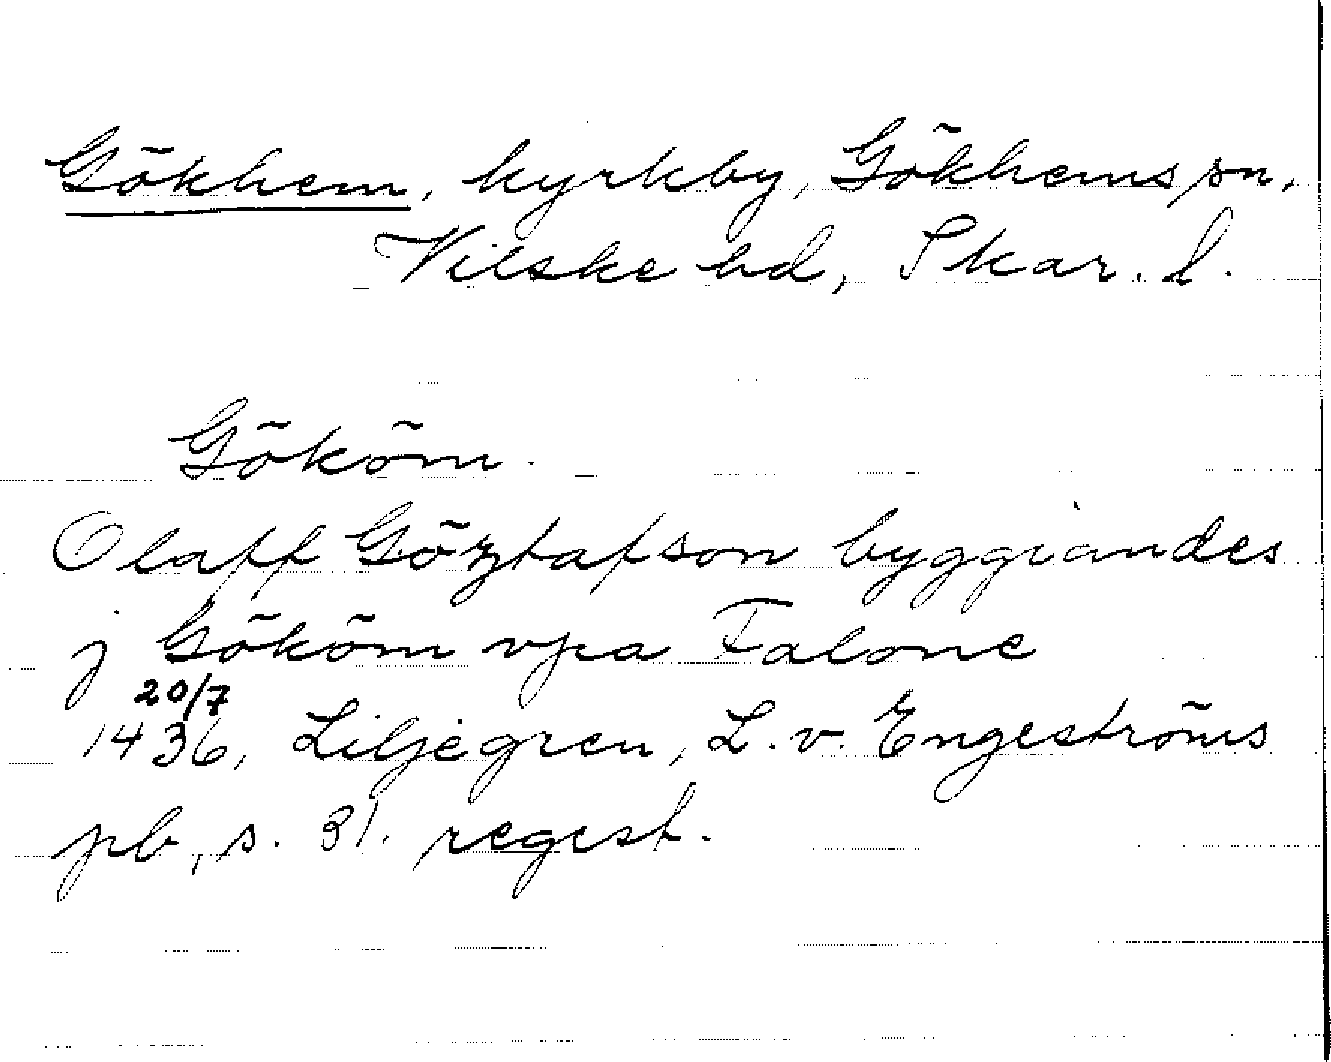 Gökhem, kyrkby, Gökhems sn,
Vilske hd, Skar. l.
Gököm.
Olaff Göztafson byggiandes
j Gököm vpa Falone
20/7
1436, Liljegren, L. v. Engeströms
pb, s. 31. regest.